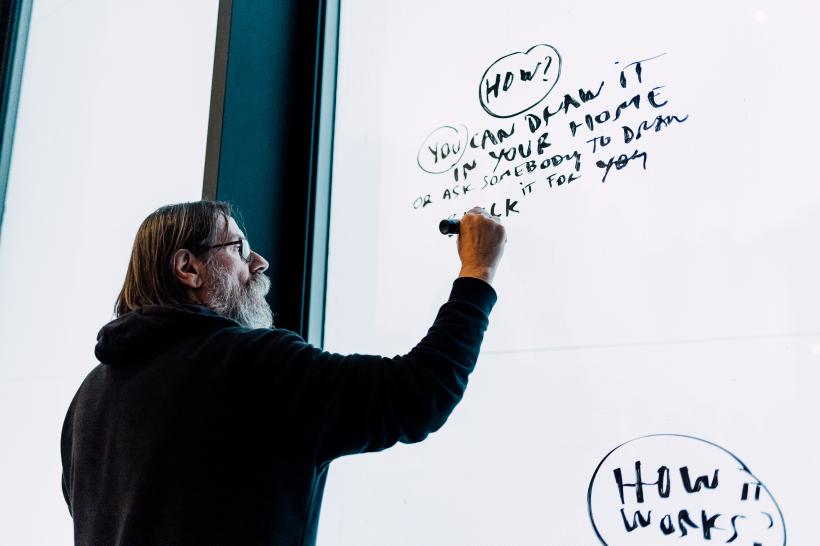 HOW?
YOU CAN DRAW IT
IN YOUR HOME
OR ASK SOMEBODY TO DRAW
IT FOR YOU
HOW IT
WORKS?